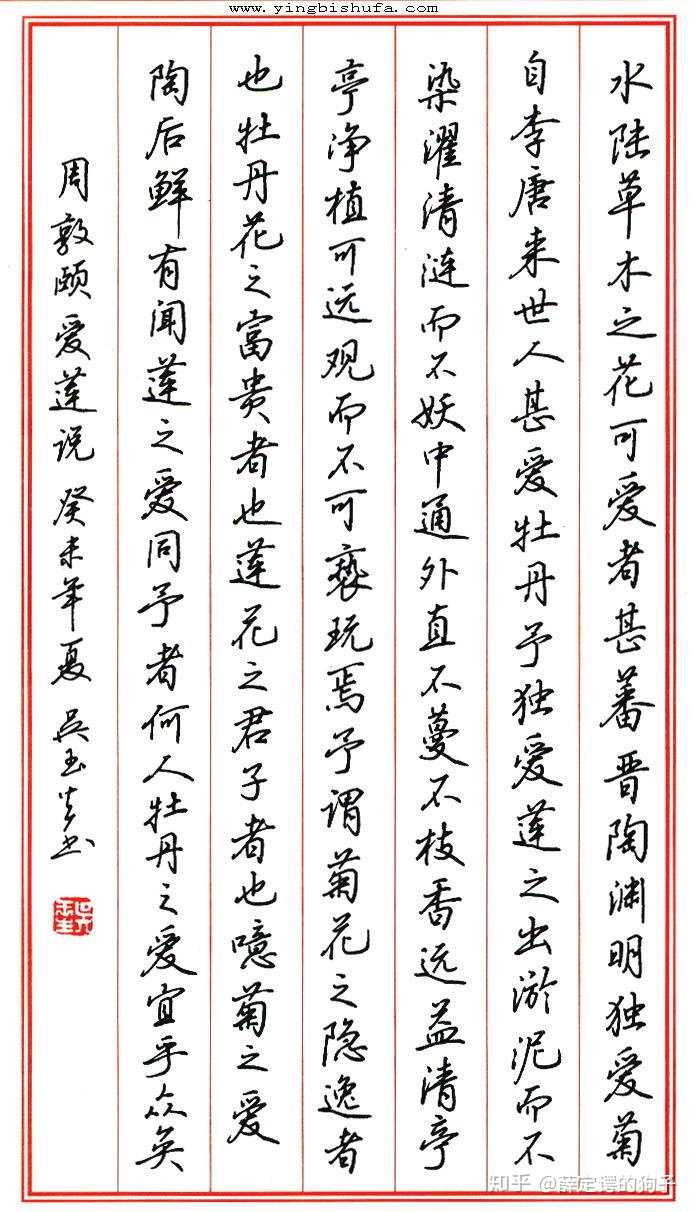 www.yingbishufa.com
水陆草木之花可爱者甚蕃晋陶渊明独爱菊
自李唐来世人甚爱牡丹予独爱莲之出淤泥而不
染濯清涟而不妖中通外直不蔓不枝香远益清亭
亭净植可远观而不可亵玩焉予谓菊花之隐逸者
也牡丹花之富贵者也莲花之君子者也噫菊之爱
陶后鲜有闻莲之爱同予者何人牡丹之爱宜乎众矣
周敦颐爱莲说癸未年夏吴玉生书
知乎 @薛定谔的狗子